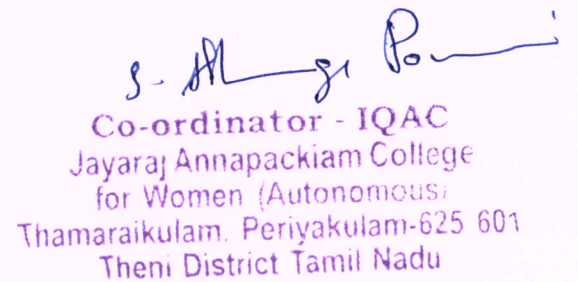 Co-ordinator - IQAC
Jayaraj Annapackiam College
for Women (Autonomous)
Thamaraikulam. Periyakulam-625 601
Theni District Tamil Nadu